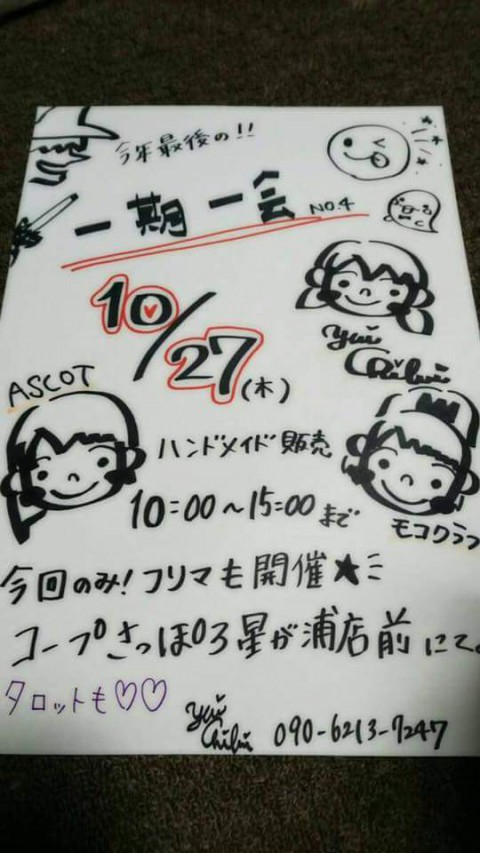 今年最後の!!
一期一会 NO.4
10/27(木)
yui
Chibi
ASCOT
ハンドメイド販売
10:00～15:00まで
モコクラフ
今回のみ!フリマも開催★
コープさっぽろ星が浦店前にて。
タロットも♡♡
yui
Chibi 090-6213-7247